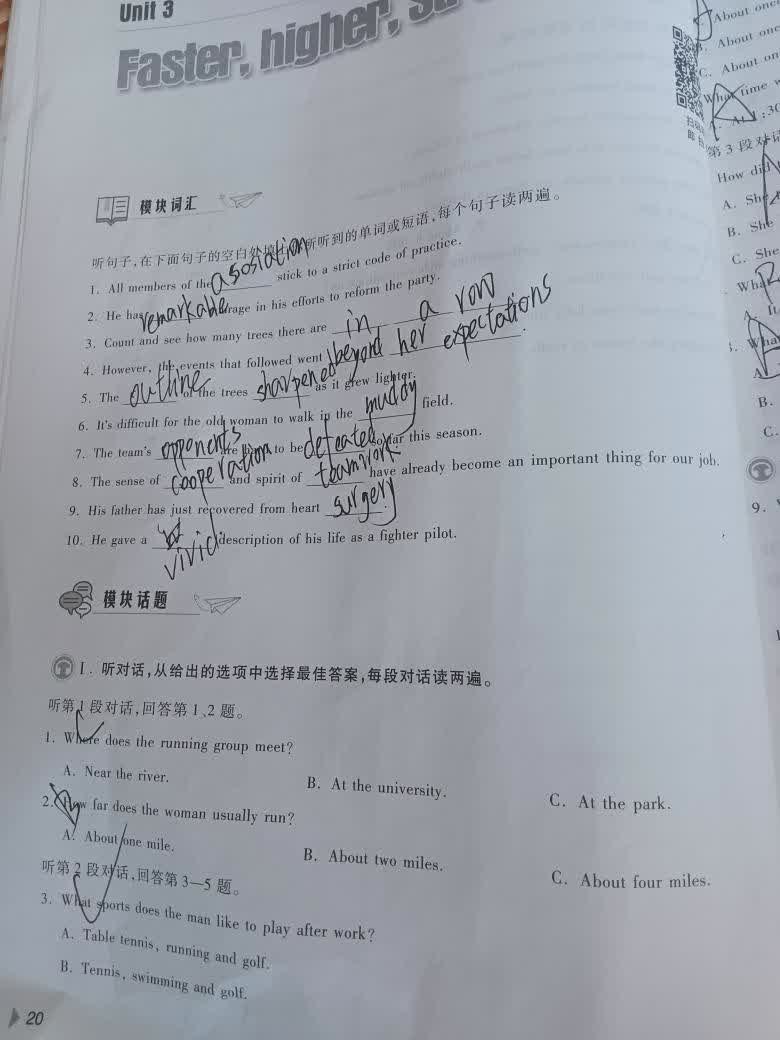 Unit 3
Faster, higher,
模块词汇
听句子,在下面句子的空白处 所听到的单词或短语,每个句子读两遍。
1. All members of the asosiation stick to a strict code of practice.
2. He has remarkable in his efforts to reform the party.
3. Count and see how many trees there are in a row
4. However, the events that followed went beyond her expectations.
5. The outline of the trees sharpened as it grew lighter.
6. It's difficult for the old woman to walk in the muddy field.
7. The team's opponents are to be defeated so far this season.
8. The sense of cooperation and spirit of teamwork have already become an important thing for our job.
9. His father has just recovered from heart surgery.
10. He gave a vivid description of his life as a fighter pilot.
模块话题
I. 听对话,从给出的选项中选择最佳答案,每段对话读两遍。
听第1段对话,回答第1、2题。
1. Where does the running group meet?
A. Near the river.
B. At the university.
C. At the park.
2. How far does the woman usually run?
A. About one mile.
B. About two miles.
C. About four miles.
听第2段对话,回答第3—5题。
3. What sports does the man like to play after work?
A. Table tennis, running and golf.
B. Tennis, swimming and golf.
20
About one
About one
C. About on
What time
第3段对话
How did
A. She
B. She
C. She
What
A. It
What
A
B.
C.
9.